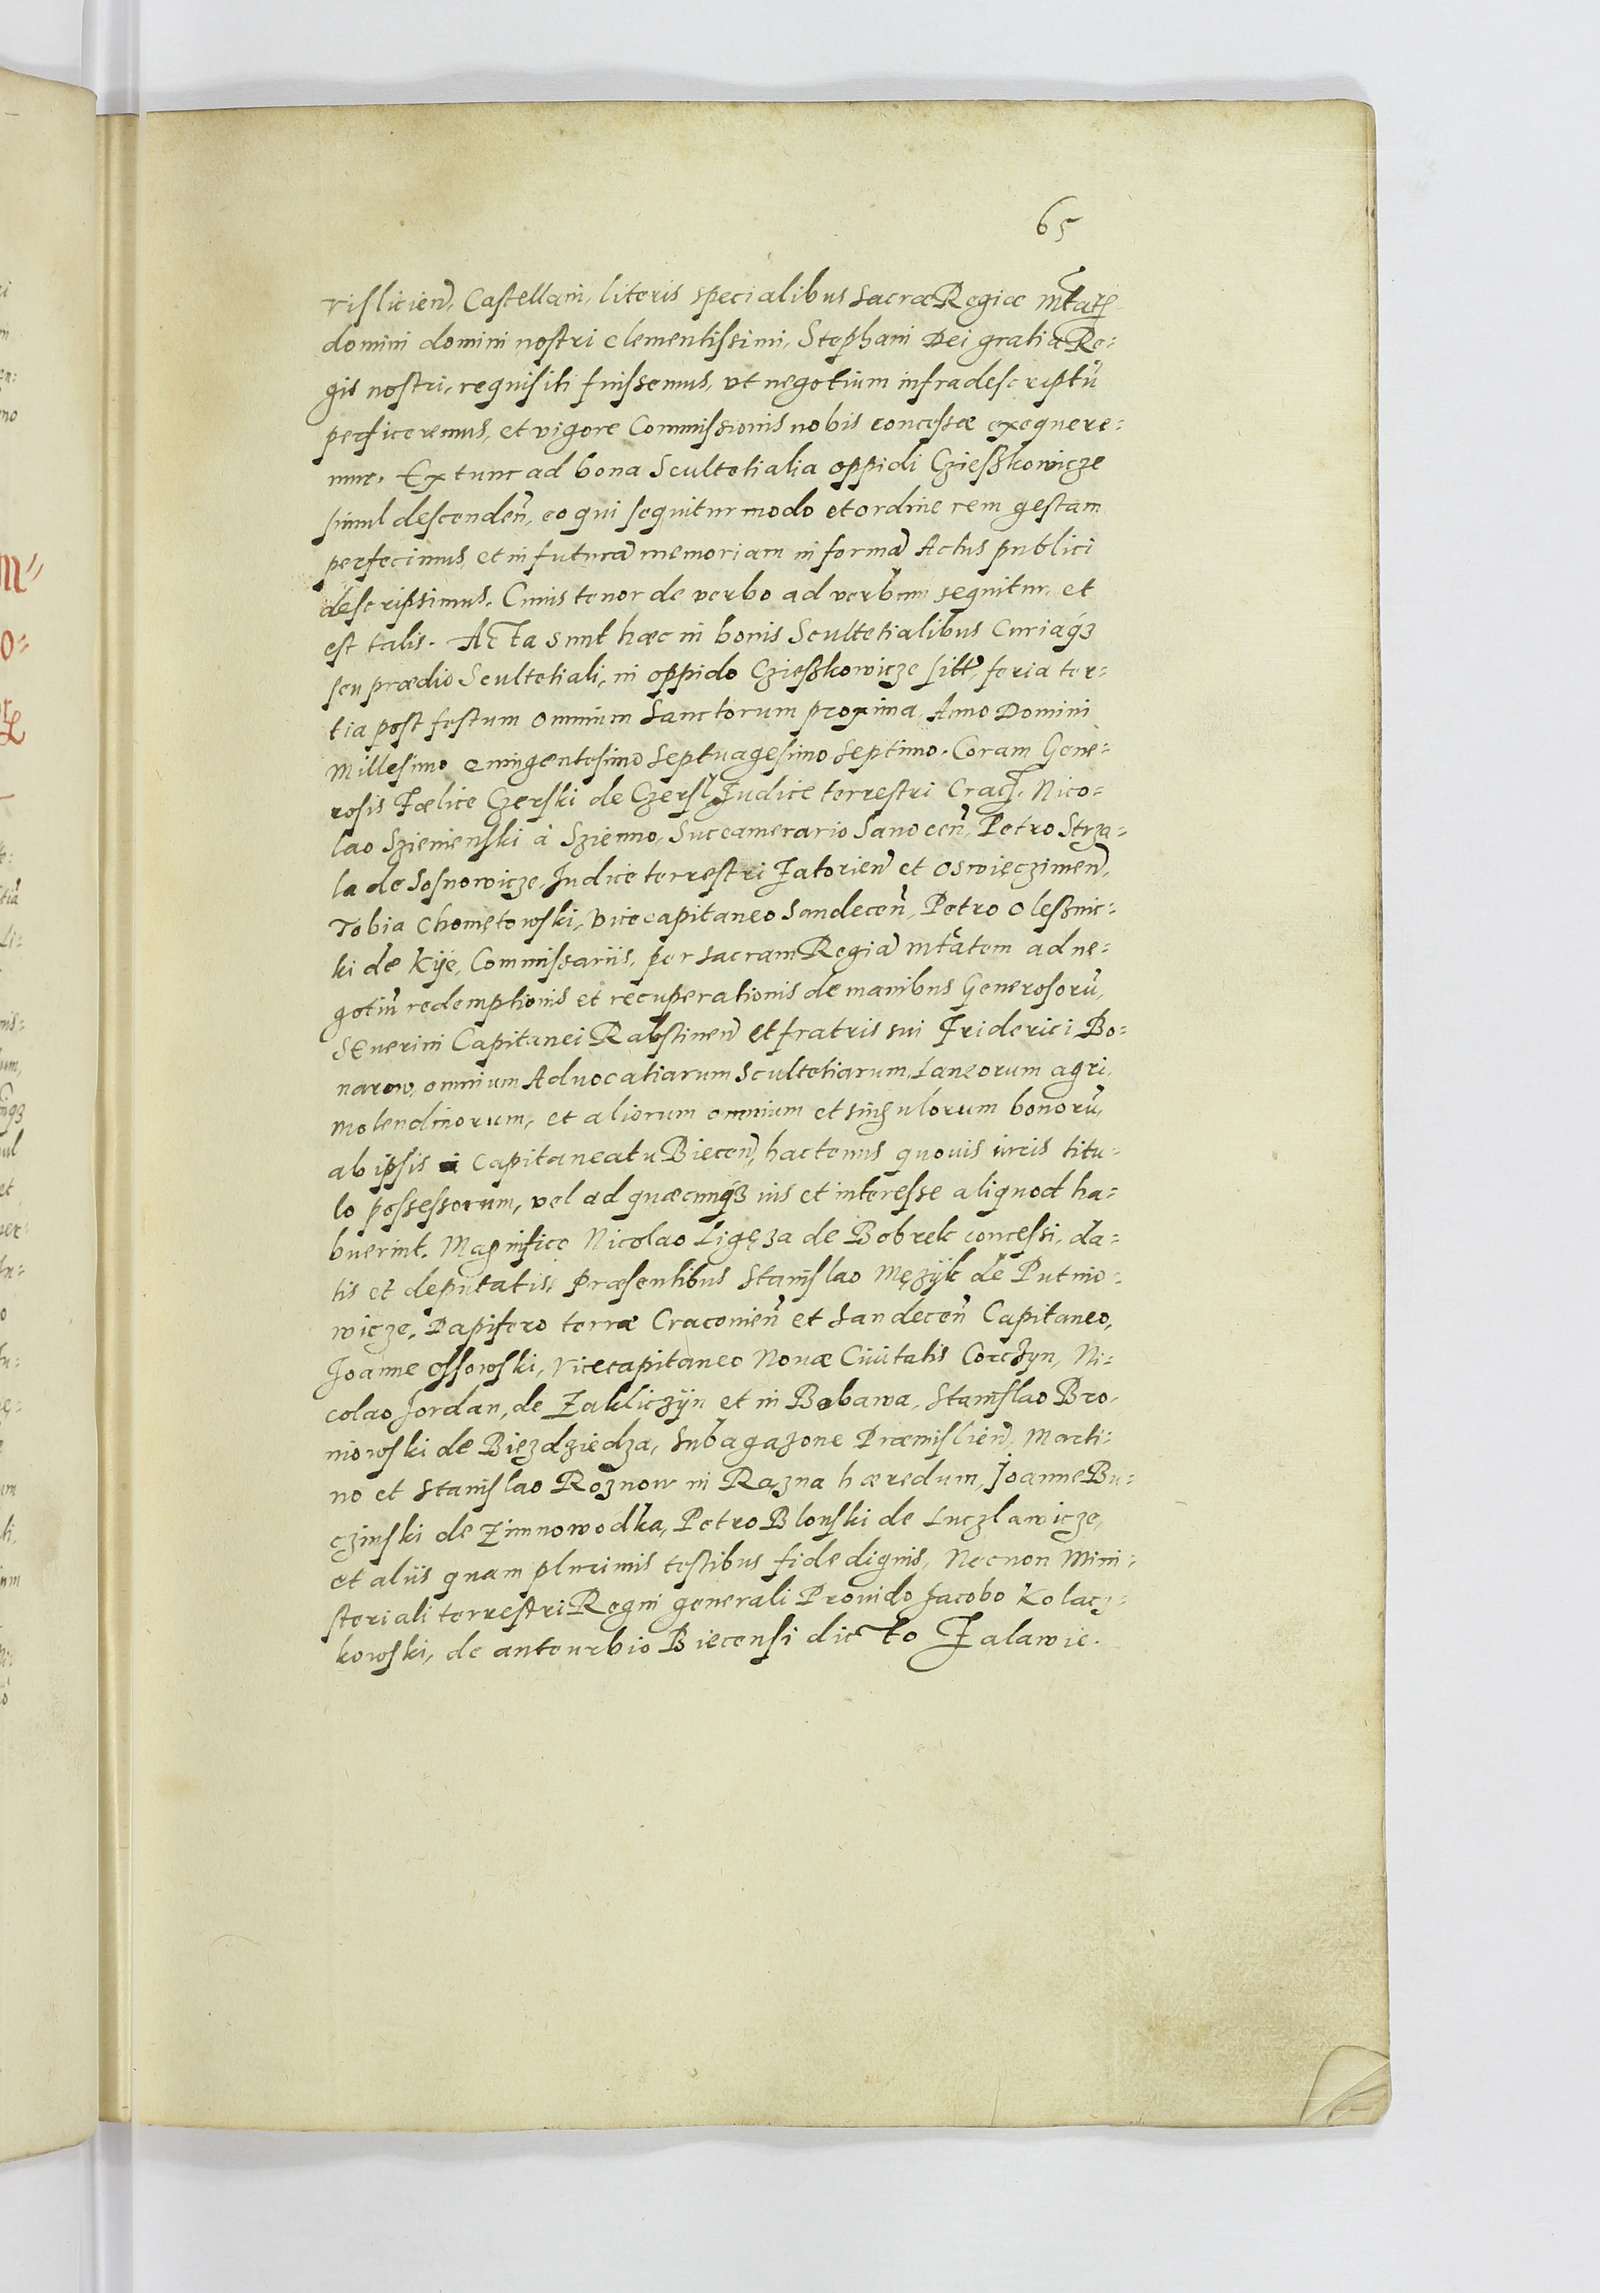 65
Visliciens, Castellani, literis specialibus Sacræ Regiæ Mtatis
domini domini nostri clementissimi, Stephani Dei gratia Re=
gis nostri, requisiti fuissemus, vt negotium infradescriptũ
perficeremus, et vigore Commissionis nobis concessæ exequere=
mur. Ex tunc ad bona Scultetialia oppidi Czieszkowicze
simul descenden̄, eo qui sequitur modo et ordine rem gestam
perfecimus, et in futurã memoriam in formã Actus publici
descripsimus. Cuius tenor de verbo ad verbum sequitur, et
est talis. Acta sunt hæc in bonis Scultetialibus Curiaq́3
seu prædio Scultetiali, in oppido Czieszkowicze sitt, feria ter=
tia post festum omnium Sanctorum proxima, Anno Domini
Millesimo quingentesimo Septuagesimo Septimo. Coram Gene=
rosis Fœlice Czerski de Czersk, Judice terrestri Crac. Nico=
lao Szienienski à Szienno, Succamerario Sanocen̄, Petro Strza=
la de Sosnowicze, Judice terrestri Zatorien̄ et Oswieczimen̄,
Tobia Chometowski, Vicecapitaneo Sandecen̄, Petro Olesznic=
ki de Kije, Commissariis, per Sacram Regiã Mtatem ad ne=
gotiũ redemptionis et recuperationis de manibus Generosorũ,
Seuerini Capitanei Rabstinen̄ et fratris sui Friderici Bo=
narow, omnium Aduocatiarum Scultetiarum, Laneorum agri,
molendinorum, et aliorum omnium et singulorum bonorũ,
ab ipsis i Capitaneatu Biecen̄, hactenus quouis iuris titu=
lo possessorum, vel ad quæcunq́3 ius et interesse aliquod ha=
buerint. Magnifico Nicolao Ligęza de Bobrek concessi, da=
tis et deputatis, præsentibus Stanislao Mężyk de Putnio=
wicze, Dapifero terræ Cracouien̄ et Sandecen̄ Capitaneo,
Joanne Ossowski, Vicecapitaneo Nouæ Ciuitatis Corczyn, Ni=
colao Jordan, de Zakliczÿn et in Bobawa, Stanislao Bro=
niowski de Biezdziedza, Subagazone Præmislien̄, Marti=
no et Stanislao Rożnow in Rązna hæredum, Joanne Bu=
czinski de Zimnowodka, Petro Blonski de Luczlawicze,
et aliis quam plurimis testibus fide dignis, Necnon Mini=
steriali terrestri Regni generali Prouido Jacobo Kolacz=
kowski, de anteurbio Biecensi dicto Zalawie.